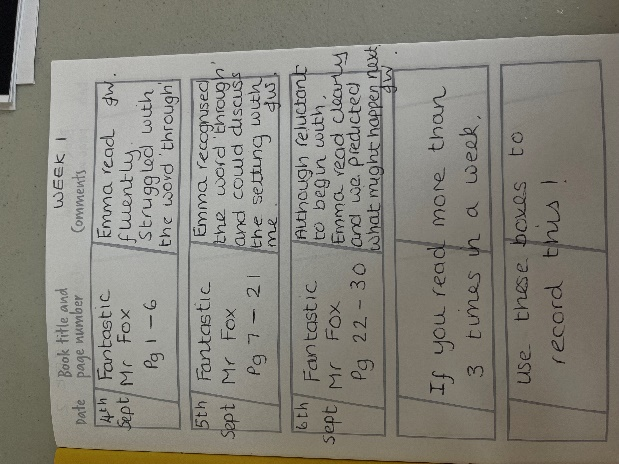 WEEK 1
Date
Book title and
page number
Comments
4th
Sept
Fantastic
Mr Fox
Pg 1-6
Emma read
fluently.
Struggled with
the word 'through'
gw.
5th
Sept
Fantastic
Mr Fox
Pg 7-21
Emma recognised
the word 'through'
and could discuss
the setting with
me.
gw.
6th
Sept
Fantastic
Mr Fox
Pg 22-30
Although reluctant
to begin with,
Emma read clearly
and we predicted
what might happen next.
gw.
If you read more than
3 times in a week,
use these boxes to
record this!